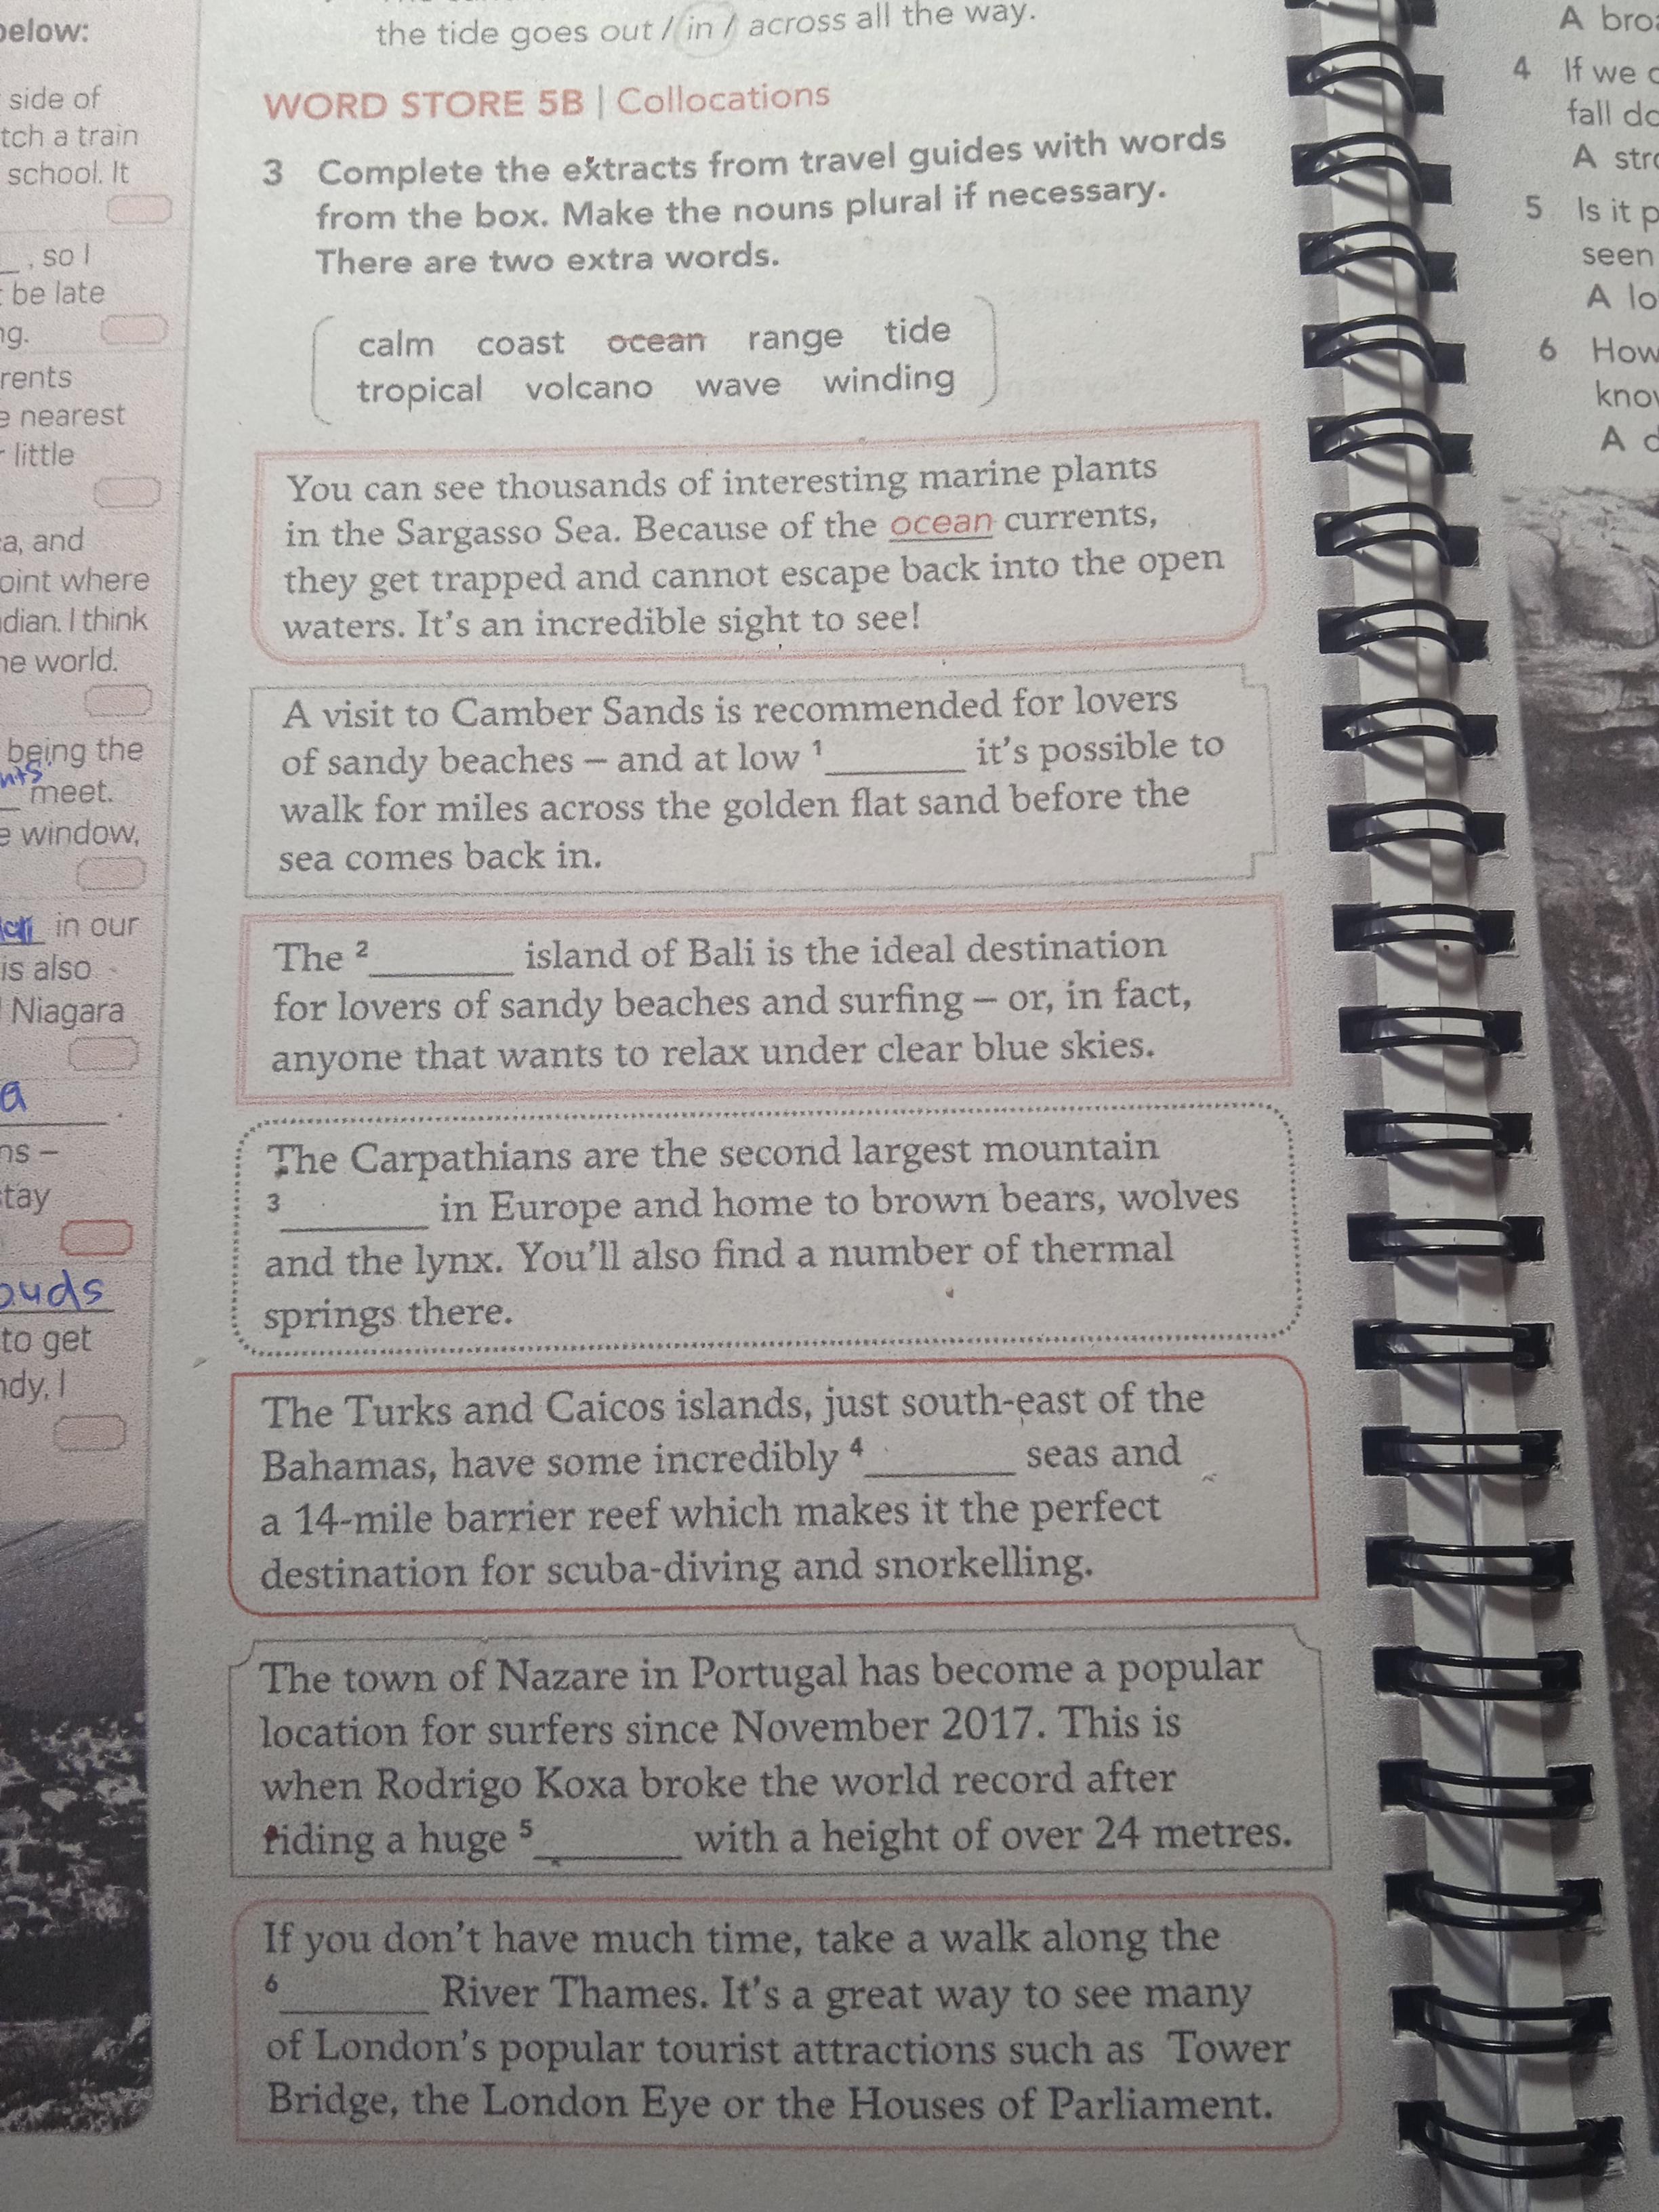 below:
side of
tch a train
school. It
, so I
be late
rents
nearest
little
a, and
oint where
dian. I think
world.
being the
meet.
window,
in our
is also
Niagara
a
ns –
stay
ouds
to get
ndy, I
the tide goes out / in / across all the way.
WORD STORE 5B | Collocations
3 Complete the extracts from travel guides with words
from the box. Make the nouns plural if necessary.
There are two extra words.
calm coast ocean range tide
tropical volcano wave winding
You can see thousands of interesting marine plants
in the Sargasso Sea. Because of the ocean currents,
they get trapped and cannot escape back into the open
waters. It's an incredible sight to see!
A visit to Camber Sands is recommended for lovers
of sandy beaches – and at low ¹_______ it's possible to
walk for miles across the golden flat sand before the
sea comes back in.
The ²_______ island of Bali is the ideal destination
for lovers of sandy beaches and surfing – or, in fact,
anyone that wants to relax under clear blue skies.
The Carpathians are the second largest mountain
³_______ in Europe and home to brown bears, wolves
and the lynx. You'll also find a number of thermal
springs there.
The Turks and Caicos islands, just south-east of the
Bahamas, have some incredibly ⁴_______ seas and
a 14-mile barrier reef which makes it the perfect
destination for scuba-diving and snorkelling.
The town of Nazare in Portugal has become a popular
location for surfers since November 2017. This is
when Rodrigo Koxa broke the world record after
riding a huge ⁵_______ with a height of over 24 metres.
If you don't have much time, take a walk along the
⁶_______ River Thames. It's a great way to see many
of London's popular tourist attractions such as Tower
Bridge, the London Eye or the Houses of Parliament.
A bro
4 If we
fall do
A str
5 Is it p
seen
A lo
6 How
know
A